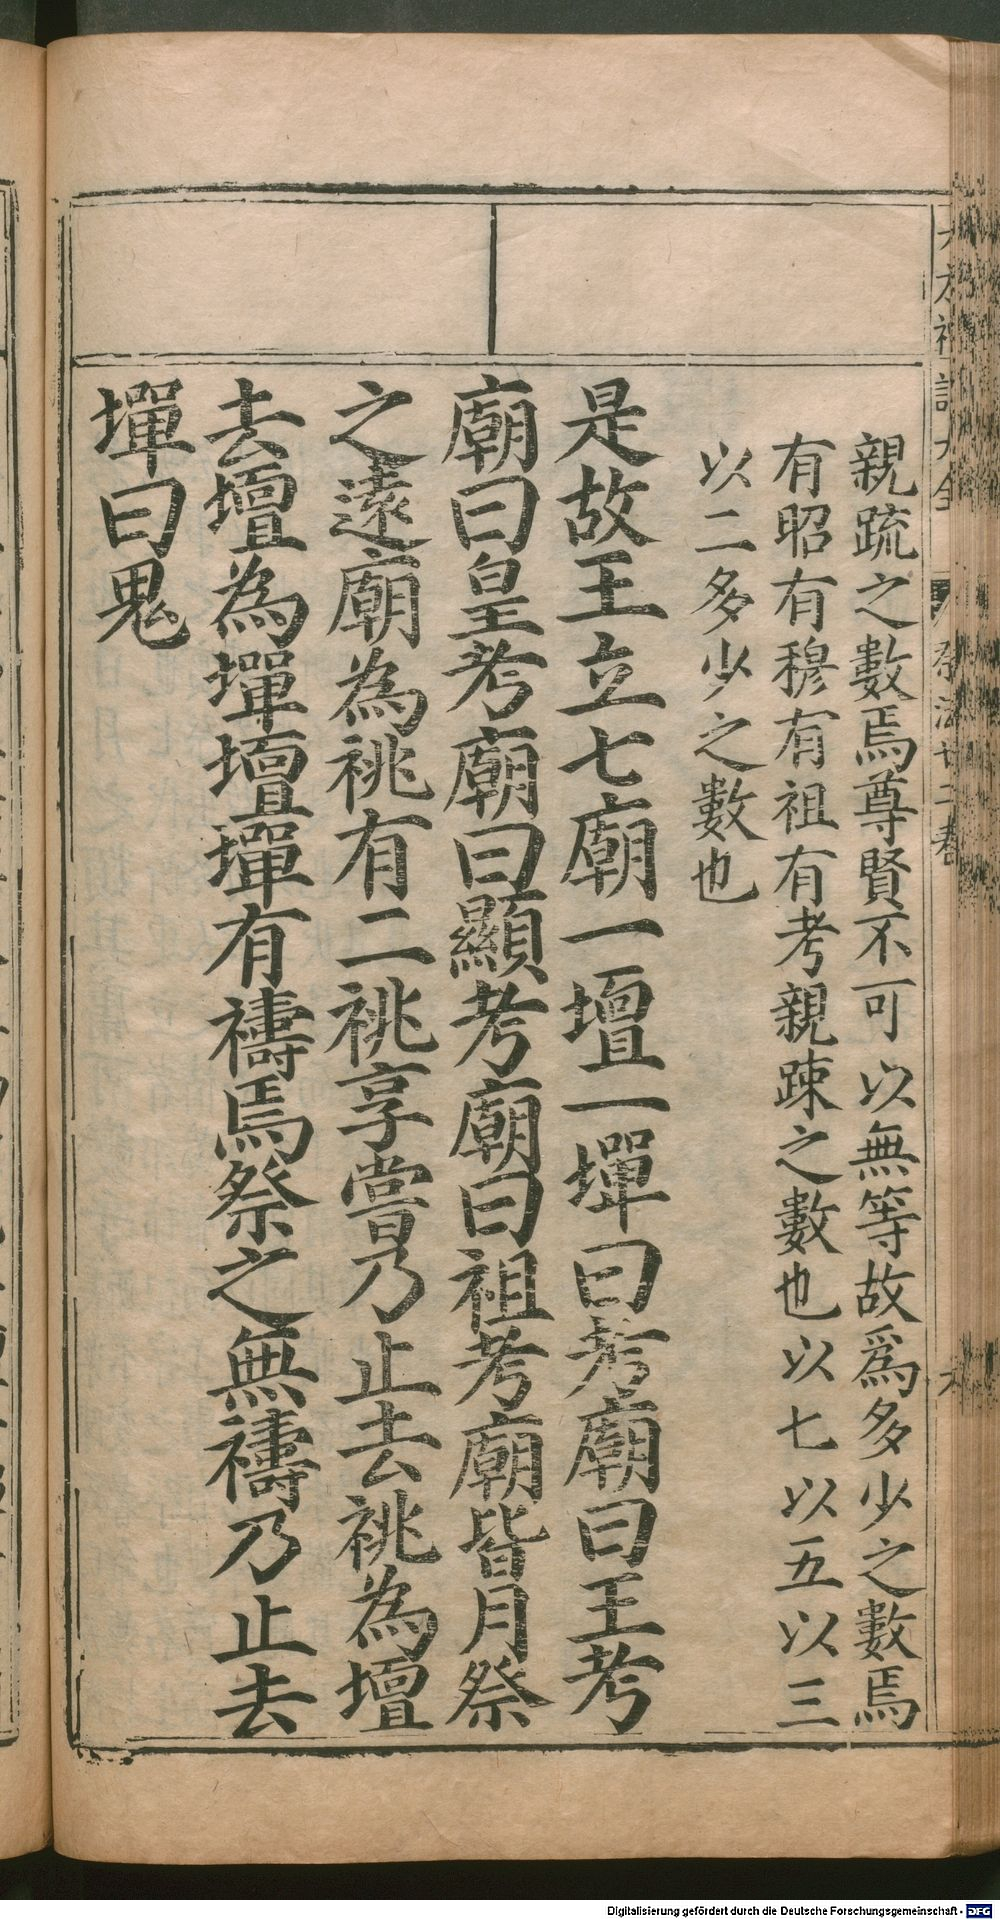 親疏之數焉尊賢不可以無等故爲多少之數焉
有昭有穆有祖有考親踈之數也以七以五以三
以二多少之數也
是故王立七廟一壇一墠曰考廟曰王考
廟曰皇考廟曰顯考廟曰祖考廟皆月祭
之遠廟為祧有二祧享嘗乃止去祧為壇
去壇為墠壇墠有禱焉祭之無禱乃止去
墠曰鬼
Digitalisierung gefördert durch die Deutsche Forschungsgemeinschaft - DFG